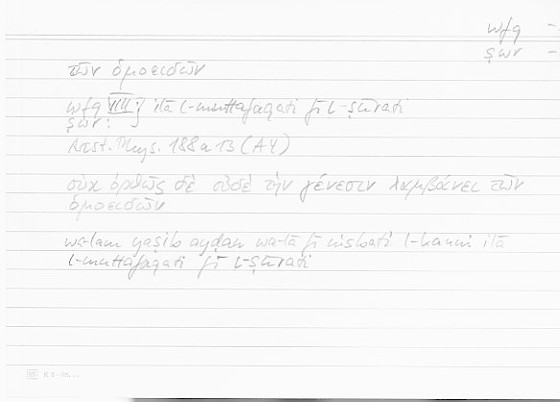 wfq –
ṣwr –
τῶν ὁμοειδῶν
wfq VIII; ilā l-muttafaqati fī l-ṣūrati
ṣwr:
Arist. Phys. 188a13 (A4)
οὐκ ὀρθῶς δὲ οὐδὲ τὴν γένεσιν λαμβάνει τῶν
ὁμοειδῶν
wa-lam yaṣib ayḍan wa-lā fī nisbati l-kauni ilā
l-muttafaqati fī l-ṣūrati